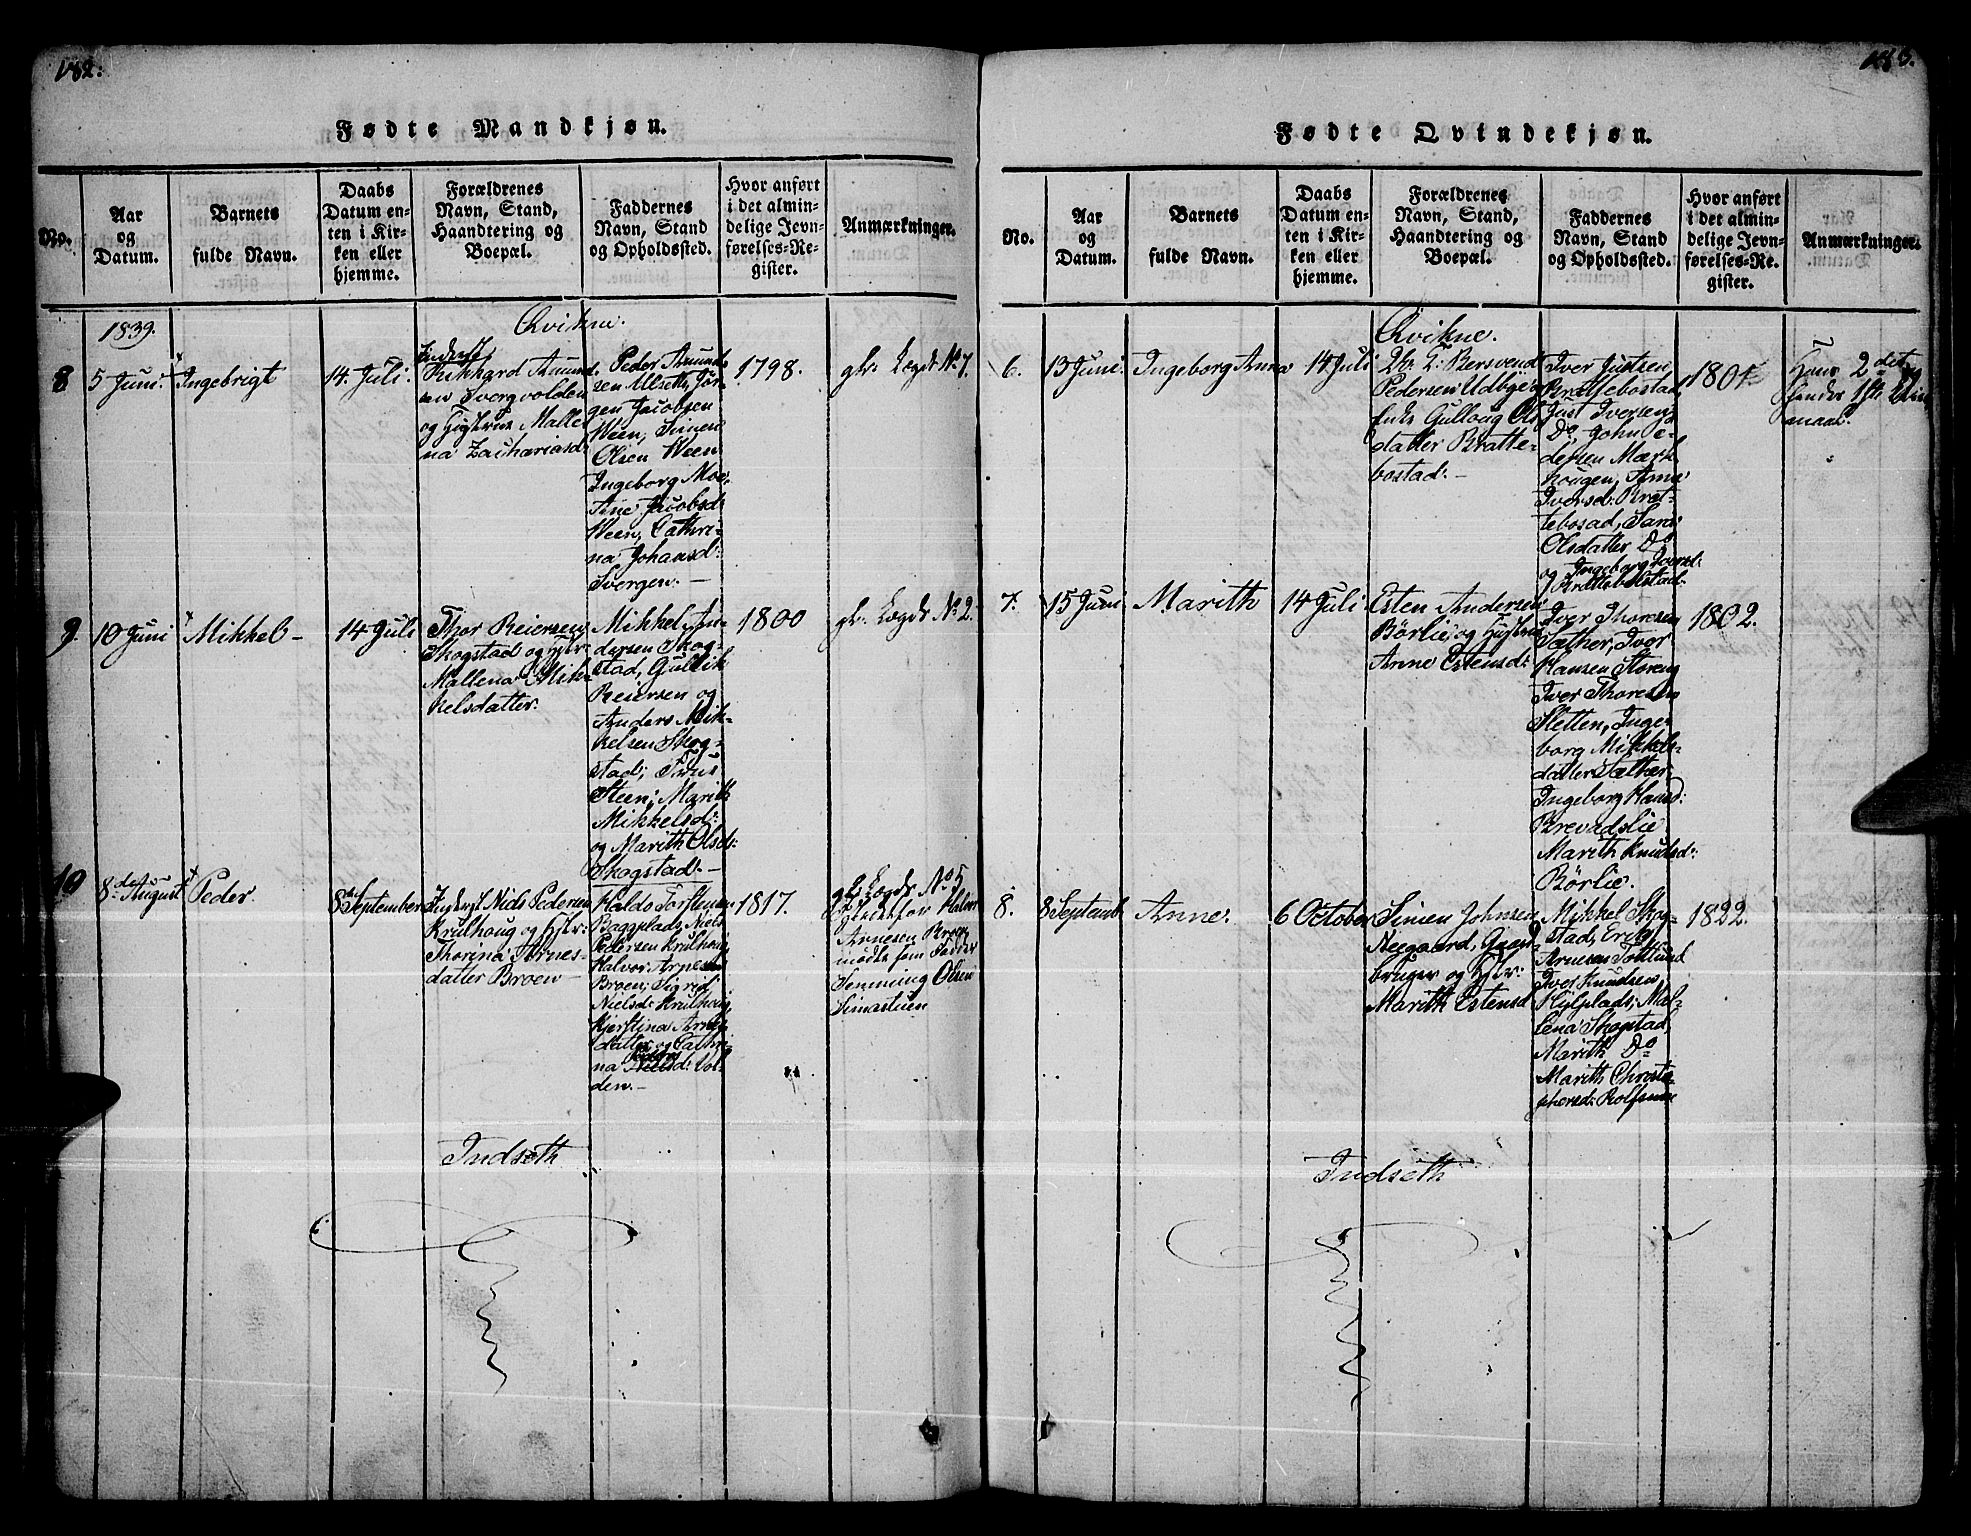 182:
Fødte Mandkjøn.
No.
Aar
og
Datum.
Barnets
fulde Navn.
Daabs
Datum en-
ten i Kir-
ken eller
hjemme.
Forældrenes
Navn, Stand,
Haandtering og
Boepæl.
Faddernes
Navn, Stand
og Opholdssted.
Hvor anført
i det almin-
delige Jevn-
førelses-Re-
gister.
Anmærkninger.
1839.
Qvikne.
8
5 Juni.
Ingebrigt
14. Juli.
Inderst
Rikhard Amund
en Svergvolden
og Hustrue Malle
na Zachariasd:
Peder Amund
sen Ulseth, Jør
gen Jacobsen
Ween, Simen
Olsen Ween
Ingeborg Moe,
Ane Jacobsd:
Ween, Cathri-
na Johansd:
Svergen. —
1798.
gl. Lægds No 7.
9.
10 Juni
Mikkel —
14 Juli
Thor Reiersen
Skogstad og Hstr:
Mallena Mik-
kelsdatter.
Mikkel An-
dersen Skog-
stad, Gullik
Reiersen og
Anders Mik-
kelsen Skog-
stad;
Steen; Marith
Mikkelsd:
og Marith Olsd:
Skogstad. —
1800
gl. Lægds No 2.
10
8de August
Peder.
8 September
Inderst Niels Pedersen
Krulhoug og Hstr:
Thorina Arnes-
datter Broen —
Haldo Torstensen
Baggplads, Niels
Pedersen Krulhoug
Halvor Arnesen
Broen; Sigrid
Nielsd: Krulhoug,
Kjerstina Arnes
datter og Cathri-
na Peders Nielsd: Vol-
den. —
1817.
gl. Lægds No 5
Istedetfor Halvor
Arnesen Broen
mødte som Fadder
Henning Olsen
Indseth
183.
Fødte Qvindekjøn.
No.
Aar
og
Datum.
Barnets
fulde Navn.
Daabs
Datum en-
ten i Kir-
ken eller
hjemme.
Forældrenes
Navn, Stand,
Haandtering og
Boepæl.
Faddernes
Navn, Stand
og Opholdssted.
Hvor anført
i det almin-
delige Jevn-
førelses-Re-
gister.
Anmærkninger.
Qvikne.
6.
13 Juni.
Ingeborg Anna
14 Juli
Bersvend
Pedersen Udbye og
Enke Gulloug Ols
datter Bratte-
bostad. —
Iver Justsen
Brattebostad,
Just Iversen
Do John E-
dersen Mærk
hougen, Anne
Iversd: Brat-
tebosad, Sara
Olsdatter Do
og Ingeborg Iversd:
Brattebostad.
1801
Hans 2det og
hendes 1ste Lei
maal.
7.
15 Juni
Marith
14 Juli
Esten Andersen
Børlie og Hustrue
Anne Estensd:
Iver Thoresen
Sæther, Iver
Hansen Storeng
Iver Thoresen
Sletten, Inge-
borg Mikkels-
datter Sæther
Ingeborg Hansd:
Brevadslie
Marith Knudsd:
Børlie.
1802.
8.
8 Septemb
Anne.
6 October
Simen Johnsen
Neegaard, Gaard
bruger og Hstr:
Marith Estensd
Mikkel Skog-
stad, Erik
Arnesen Sotlund
Iver Knudsen
Hylplads; Mal-
lena Skogstad,
Marith Do
Marith Christo-
phersd: Rolfsmoe
1822.
Indseth